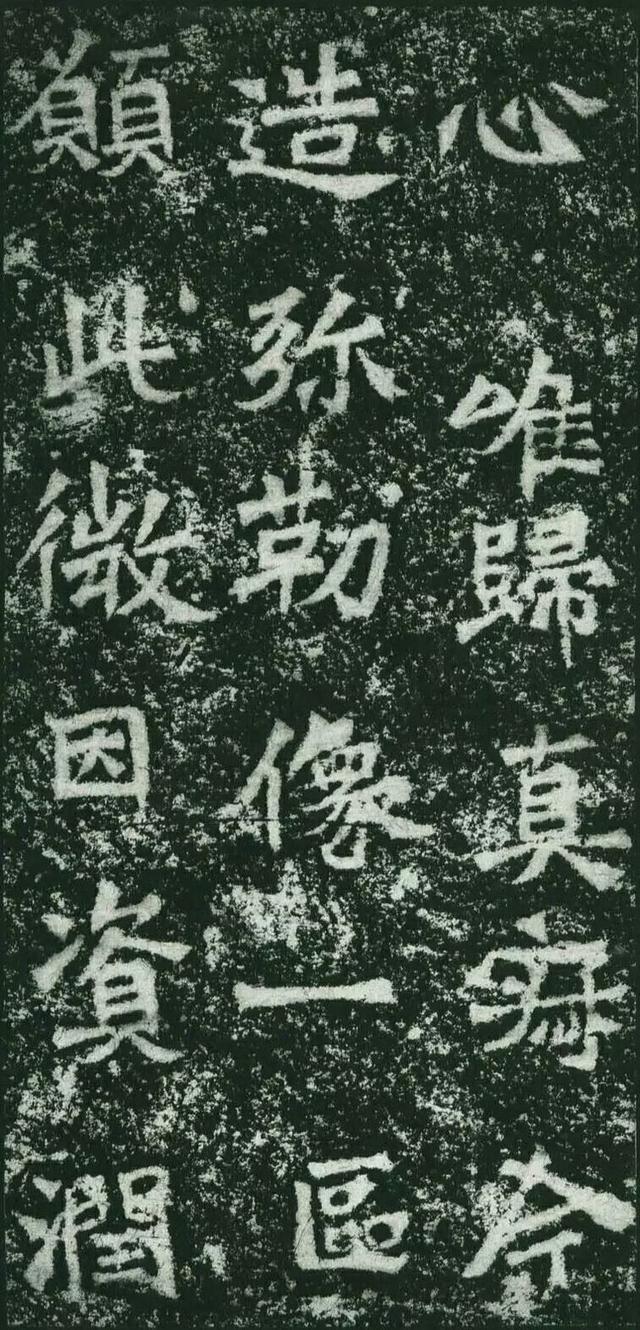 心唯歸真
造弥勒像一區
願此微因資潤